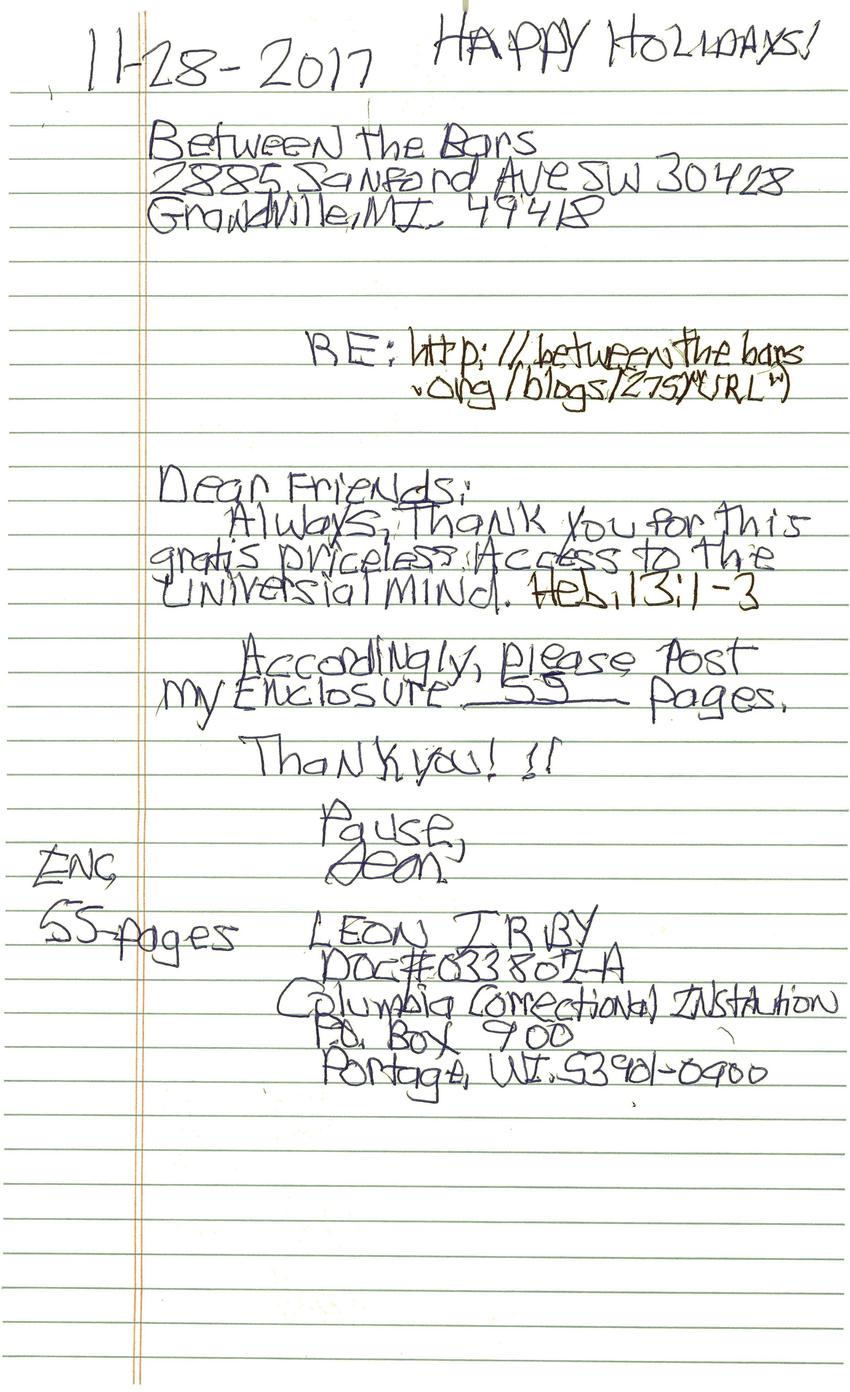 11-28-2017 HAPPY HOLIDAYS!
Between the Bars
2885 Sanford Ave SW 30428
Grandville, MI. 49418
RE: http://betweenthebars
.org/blogs/275/("URL")
Dear Friends:
Always, Thank you for this
gratis priceless Access to the
Universial Mind. Heb. 13:1-3
Accordingly, please Post
my Enclosure 55 pages.
Thank you! !!
Pause,
Leon
ENC
55-pages
LEON IRBY
DOC#033807-A
Columbia Correctional Institution
P.O. Box 900
Portage, WI. 53901-0900